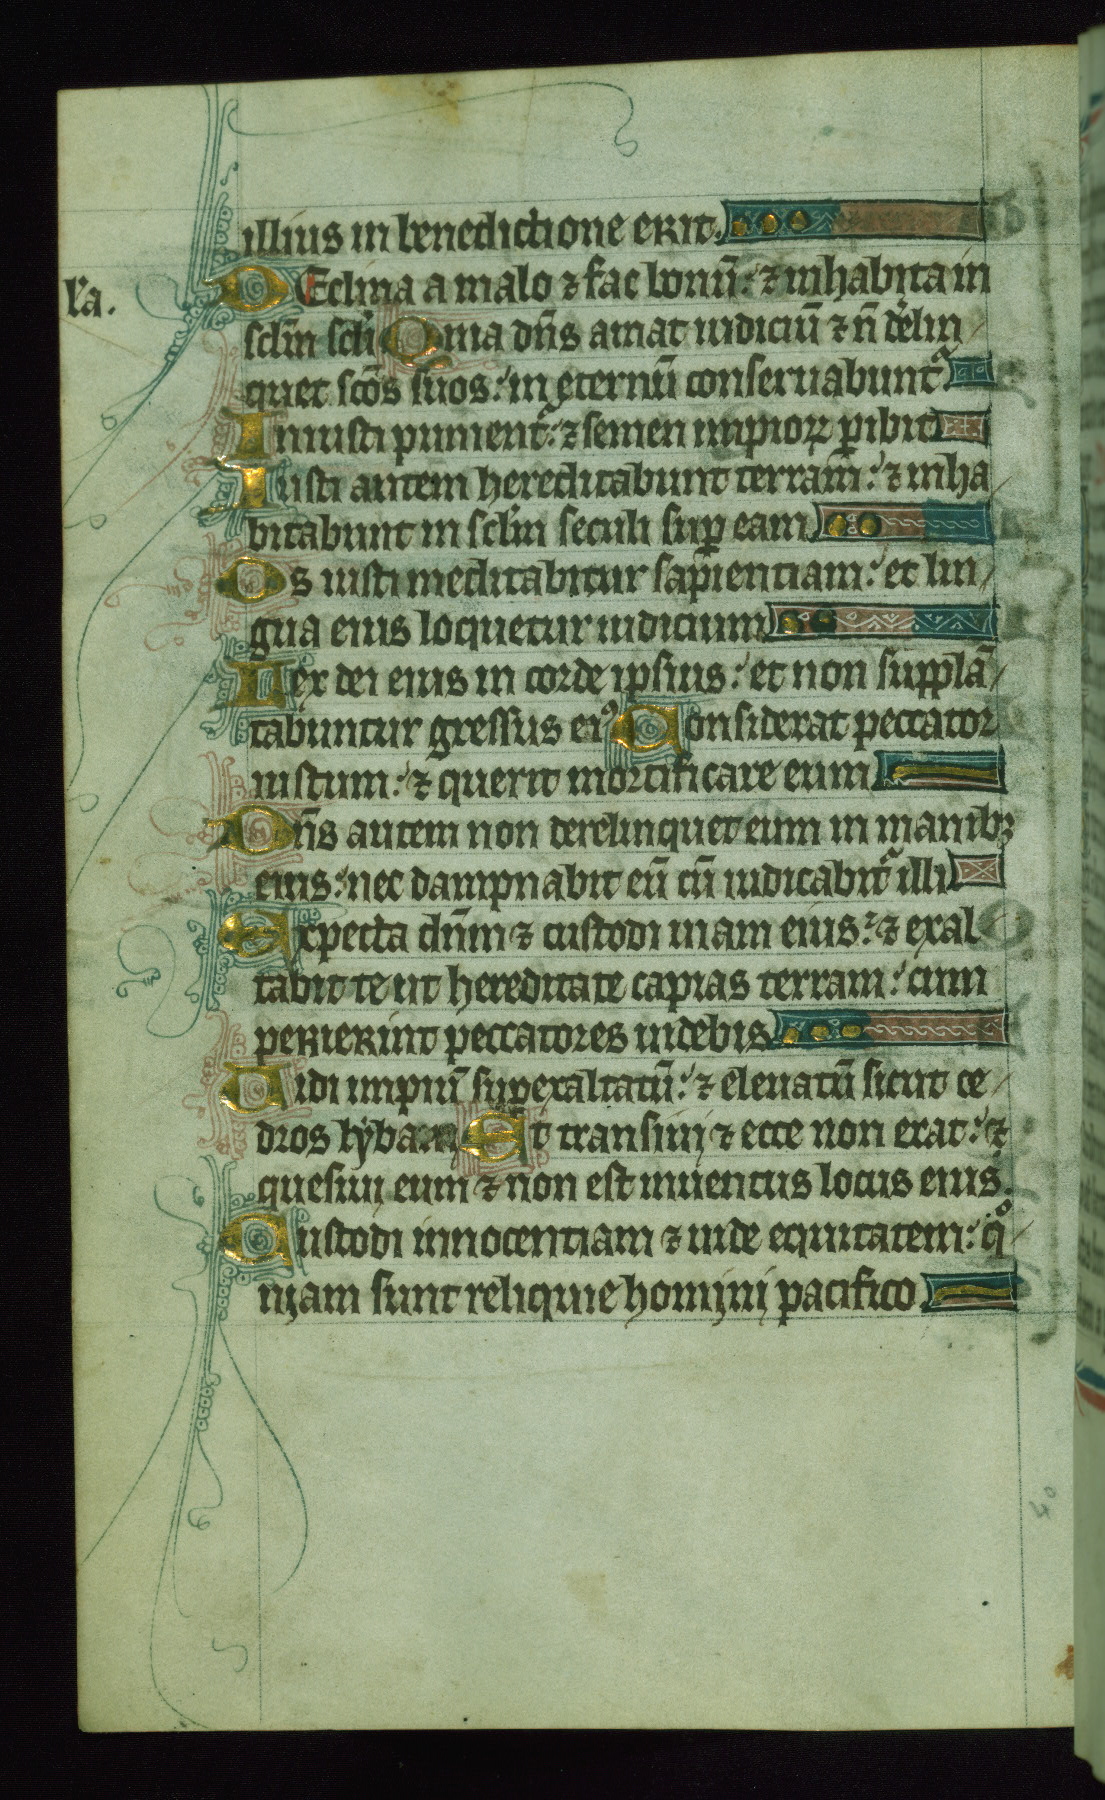 illius in benedictione erit.
l'a.
DEclina a malo ⁊ fac bonū: ⁊ inhabita in
sclm̄ scli Quia dn̄s amat iudiciū ⁊ n̄ derelin
quet scōs suos: in eternū conseruabunt᷑
Iniusti punient᷑: ⁊ semen impioꝝ ꝑibit
Iusti autem hereditabunt terram̄: ⁊ inha
bitabunt in sclm̄ seculi suꝑ eam
Os iusti meditabitur sapientiam: et lin
gua eius loquetur iudicium
Lex dei eius in corde ipsius: et non supplā
tabuntur gressus eiꝰ Considerat peccator
iustum: ⁊ querit mortificare eum
Dn̄s autem non derelinquet eum in manibꝫ
eius: nec dampnabit eū cū iudicabit᷑ illi
Expecta dn̄m ⁊ custodi uiam eius: ⁊ exal
tabit te ut hereditate capias terram: cum
perierint peccatores uidebis
Uidi impiū superexaltatū: ⁊ eleuatū sicut ce
dros lybani Et transiui ⁊ ecce non erat: ⁊
quesiui eum ⁊ non est inuentus locus eius.
Custodi innocentiam ⁊ uide equitatem: qͦ
niam sunt reliquie homini pacifico
40